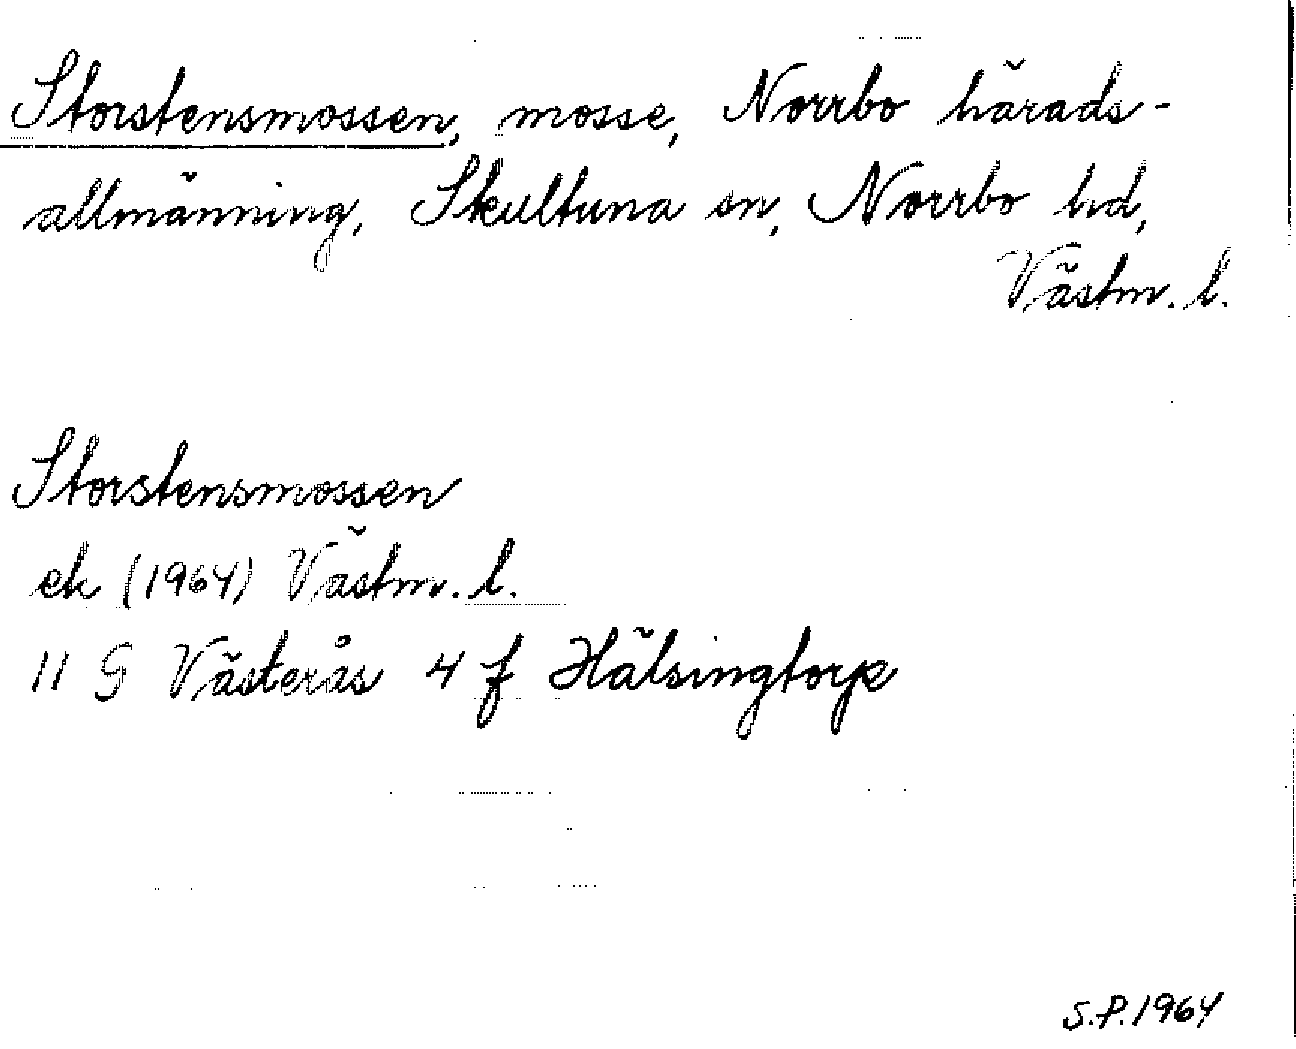 Storstensmossen, mosse, Norrbo härads-
allmänning, Skultuna sn, Norrbo hd,
Västm. l.
Storstensmossen
ek (1964) Västm. l.
11 G Västerås 4 f Hälsingtorp
S.P. 1964